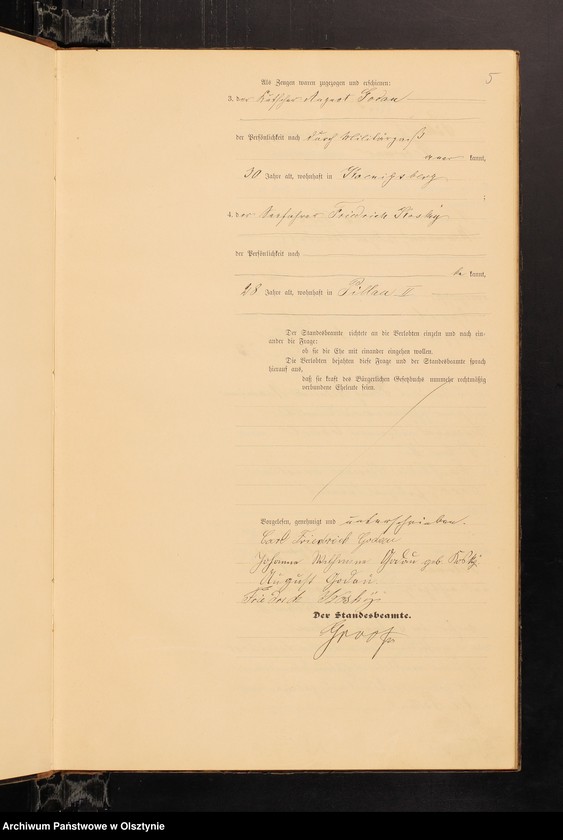 5
Als Zeugen waren zugezogen und erschienen:
3. der Kutscher August Godau
der Persönlichkeit nach durch Militärpaß
aner kannt,
30 Jahre alt, wohnhaft in Koenigsberg
;
4. der Friedrich Kosky
der Persönlichkeit nach
be kannt,
28 Jahre alt, wohnhaft in Pillau II
Der Standesbeamte richtete an die Verlobten einzeln und nach ein-
ander die Frage:
ob sie die Ehe mit einander eingehen wollen.
Die Verlobten bejahten diese Frage und der Standesbeamte sprach
hierauf aus,
daß sie kraft des Bürgerlichen Gesetzbuchs nunmehr rechtmäßig
verbundene Eheleute seien.
Vorgelesen, genehmigt und unterschrieben.
Carl Friedrich Godau
Johanna Wilhelmine Godau geb. Kosky.
August Godau.
Friedrich Kosky
Der Standesbeamte.
Archiwum Państwowe w Olsztynie